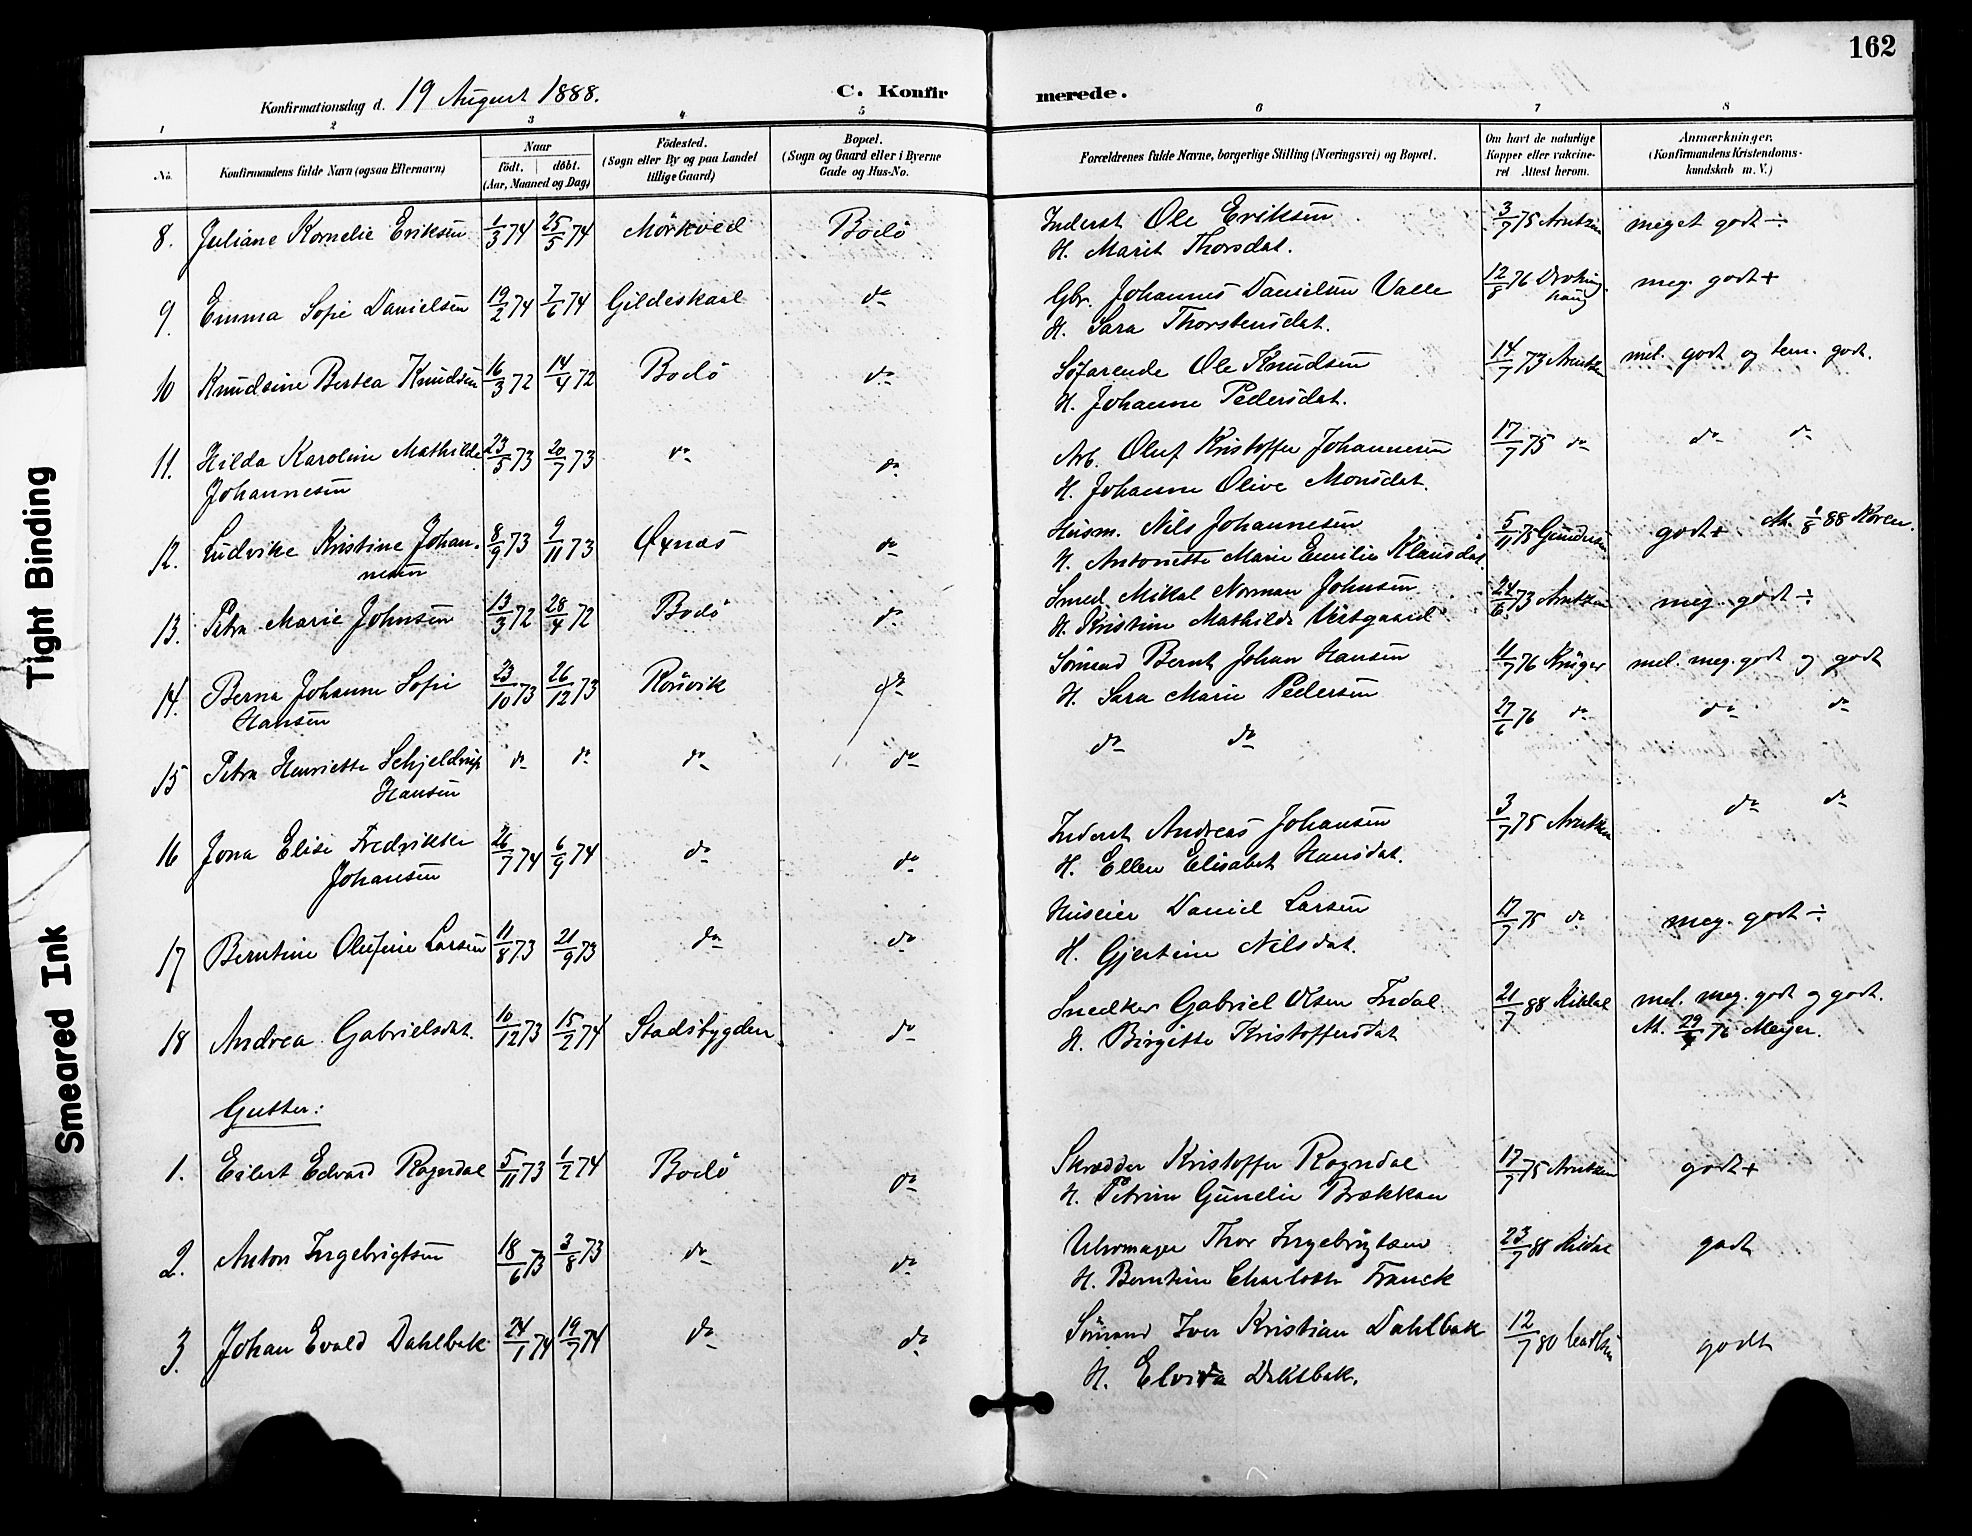 162
Konfirmationsdag d. 19 August 1888.
C. Konfir
merede.
1 2 3 4 5 6 7 8
No.
Konfirmandens fulde Navn (ogsaa Efternavn)
Naar
födt. döbt.
(Aar, Maaned og Dag)
Födested.
(Sogn eller By og paa Landet
tillige Gaard)
Bopæl.
(Sogn og Gaard eller i Byerne
Gade og Hus-No.
Forældrenes fulde Navne, borgerlige Stilling (Næringsvei) og Bopæl.
Om havt de naturlige
Kopper eller vakcine-
ret Attest herom.
Anmærkninger.
(Konfirmandens Kristendoms-
kundskab m. V.)
8. Juliane Kornelie Eriksen 1/3 74 25/5 74 Mörkved Bodö Inderst Ole Eriksen 3/7 75 Arntzen meget godt ÷
H. Marit Thorsdat.
9. Emma Sofie Danielsen 19/2 74 7/6 74 Gildeskaal do Gbr. Johannes Danielsen Valle 12/8 76 meg. godt +
H. Sara Thorstensdat.
10 Knudsine Bertea Knudsen 16/3 72 14/4 72 Bodö do Söfarende Ole Knudsen 14/7 73 Arntzen mel. godt og tem. godt.
H. Johanne Pedersdat.
11. Hilda Karoline Mathilde 23/5 73 20/7 73 do do Arb. Oluf Kristoffer Johannesen 17/7 75 do do do
Johannesen H. Johanne Olive Monsdat.
12. Ludvike Kristine Johan- 8/9 73 9/11 73 Öxnæs do Husm. Nils Johannesen 5/11 75 Gundersen godt + At. 1/8 88 Koren.
nesen H. Antonette Marie Emilie Klausdat
13. Petra Marie Johnsen 13/3 72 28/4 72 Bodö do Smed Mikal Norman Johnsen 24/6 73 Arntzen meg. godt ÷
H. Kristine Mathilde Vestgaard
14. Berna Johanne Sofie 23/10 73 26/12 73 Rösvik do Sömand Bernt Johan Hansen 11/7 76 Krüger mel. meg. godt og godt
Hansen H. Sara Marie Pedersen
15 Petra Henriette Schjeldrup do do do do do do 27/6 76 do do do
Hansen
16 Jona Elise Fredrikke 26/7 74 6/9 74 do do Inderst Andreas Johansen 3/7 75 Arntzen do do
Johansen H. Ellen Elisabet Hansdat.
17 Berntine Olufine Larsen 11/8 73 21/9 73 do do Huseier Daniel Larsen 17/7 75 do meg. godt ÷
H. Gjertine Nilsdat.
18 Andrea Gabrielsdat. 10/12 73 15/2 74 Stadsbygden do Snedker Gabriel Olsen Indal 21/7 88 Kildal mel. meg. godt og godt.
H. Birgitte Kristoffersdat At. 29/ 76 Meyer.
Gutter:
1. Eilert Edvard Rognsdal 5/11 73 1/2 74 Bodö do Skrædder Kristoffer Rogndal 17/7 75 Arntzen godt +
H. Petrine Gunelie Brækkan
2. Anton Ingebrigtsen 18/6 73 3/8 73 do do Uhrmager Thor Ingebrigtsen 23/7 88 Kildal godt
H. Berntine Charlotte Franck
3. Johan Evald Dahlbak 24/1 74 19/7 74 do do Sömand Iver Kristian Dahlbak 12/7 80 godt
H. Elvida Dahlbak.
Tight Binding
Smeared Ink